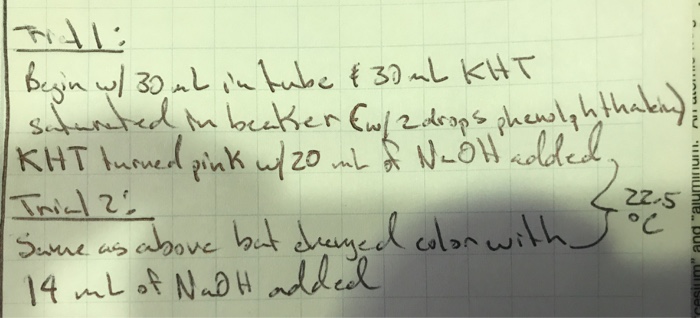 Trial 1:
Begin w/ 30 mL in tube & 30 mL KHT
saturated in beaker (w/ 2 drops phenolphthalein)
KHT turned pink w/ 20 mL of NaOH added
Trial 2:
22.5
°C
Same as above but changed color with
14 mL of NaOH added
aluminum.